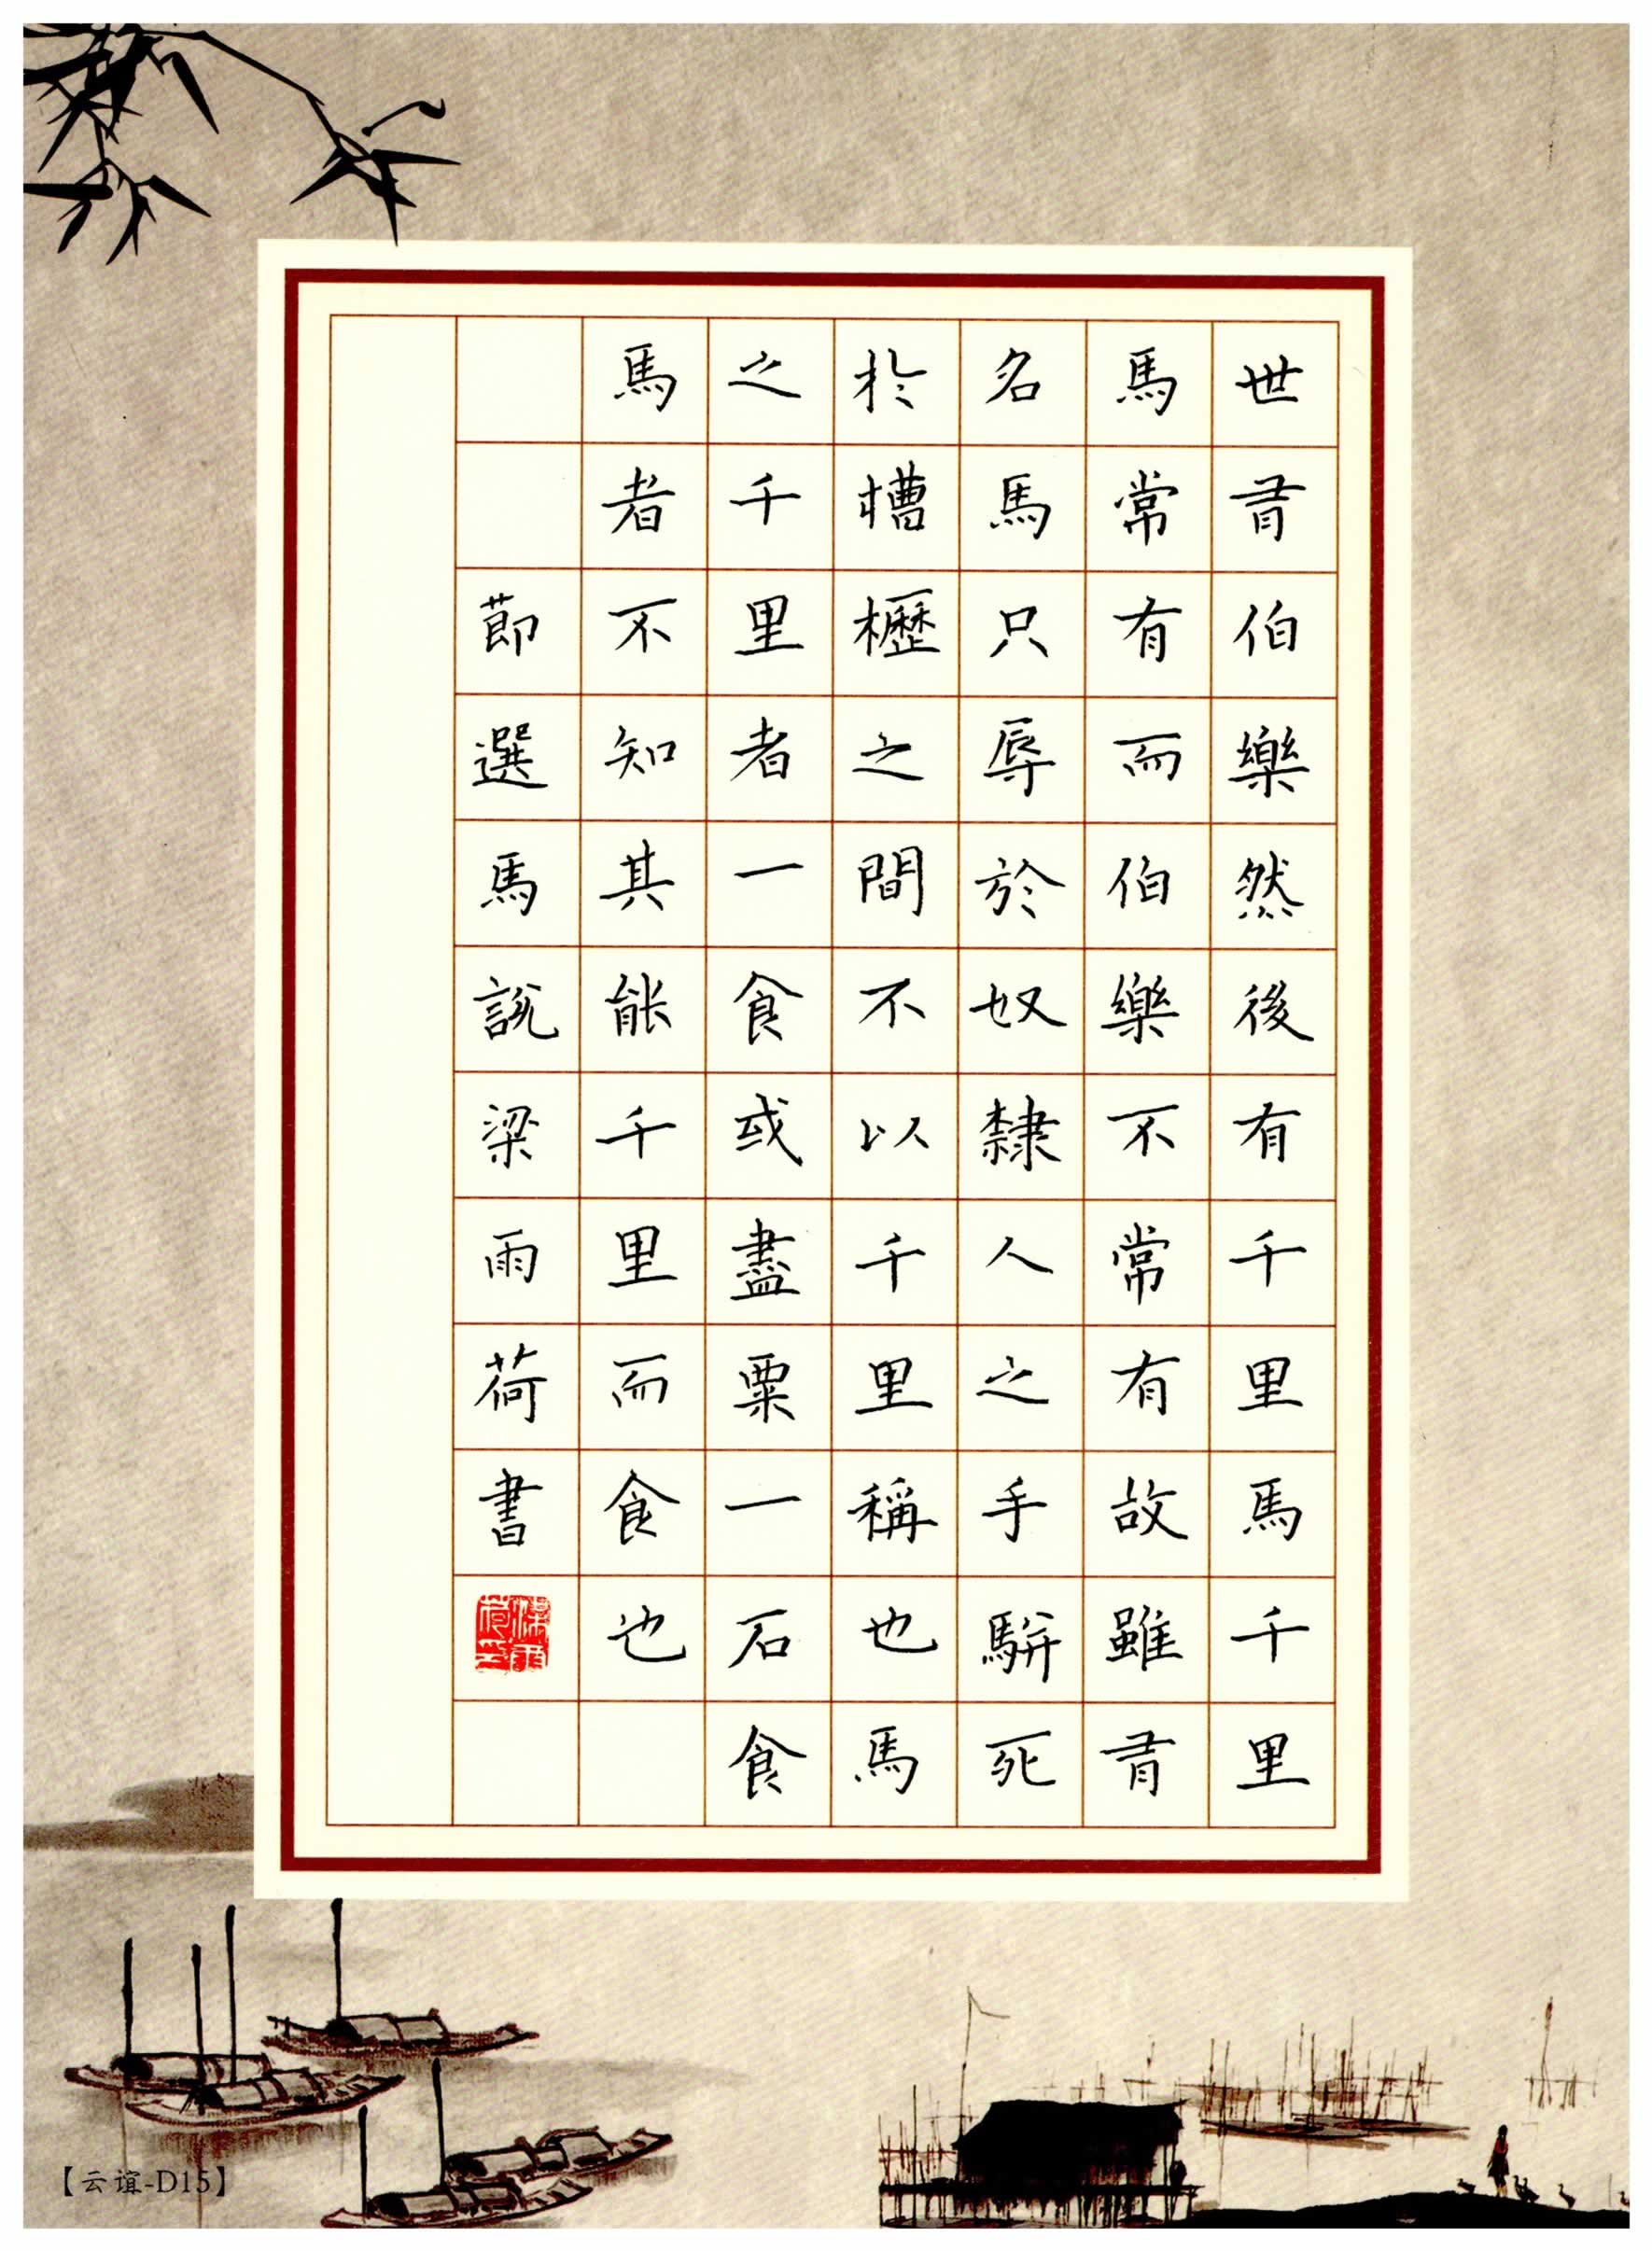 世有伯樂然後有千里馬千里
馬常有而伯樂不常有故雖有
名馬只辱於奴隸人之手駢死
於槽櫪之間不以千里稱也馬
之千里者一食或盡粟一石食
馬者不知其能千里而食也
節選馬說梁雨荷書
梁雨荷印
【云谊-D15】